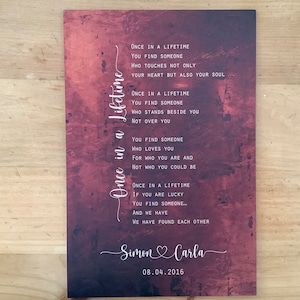 Once in a Lifetime
Once in a lifetime
You find someone
Who touches not only
your heart but also your soul
Once in a lifetime
You find someone
Who stands beside you
Not over you
You find someone
Who loves you
For who you are and
Not who you could be
Once in a lifetime
If you are lucky
You find someone...
And we have
We have found each other
Simon Carla
08.04.2016